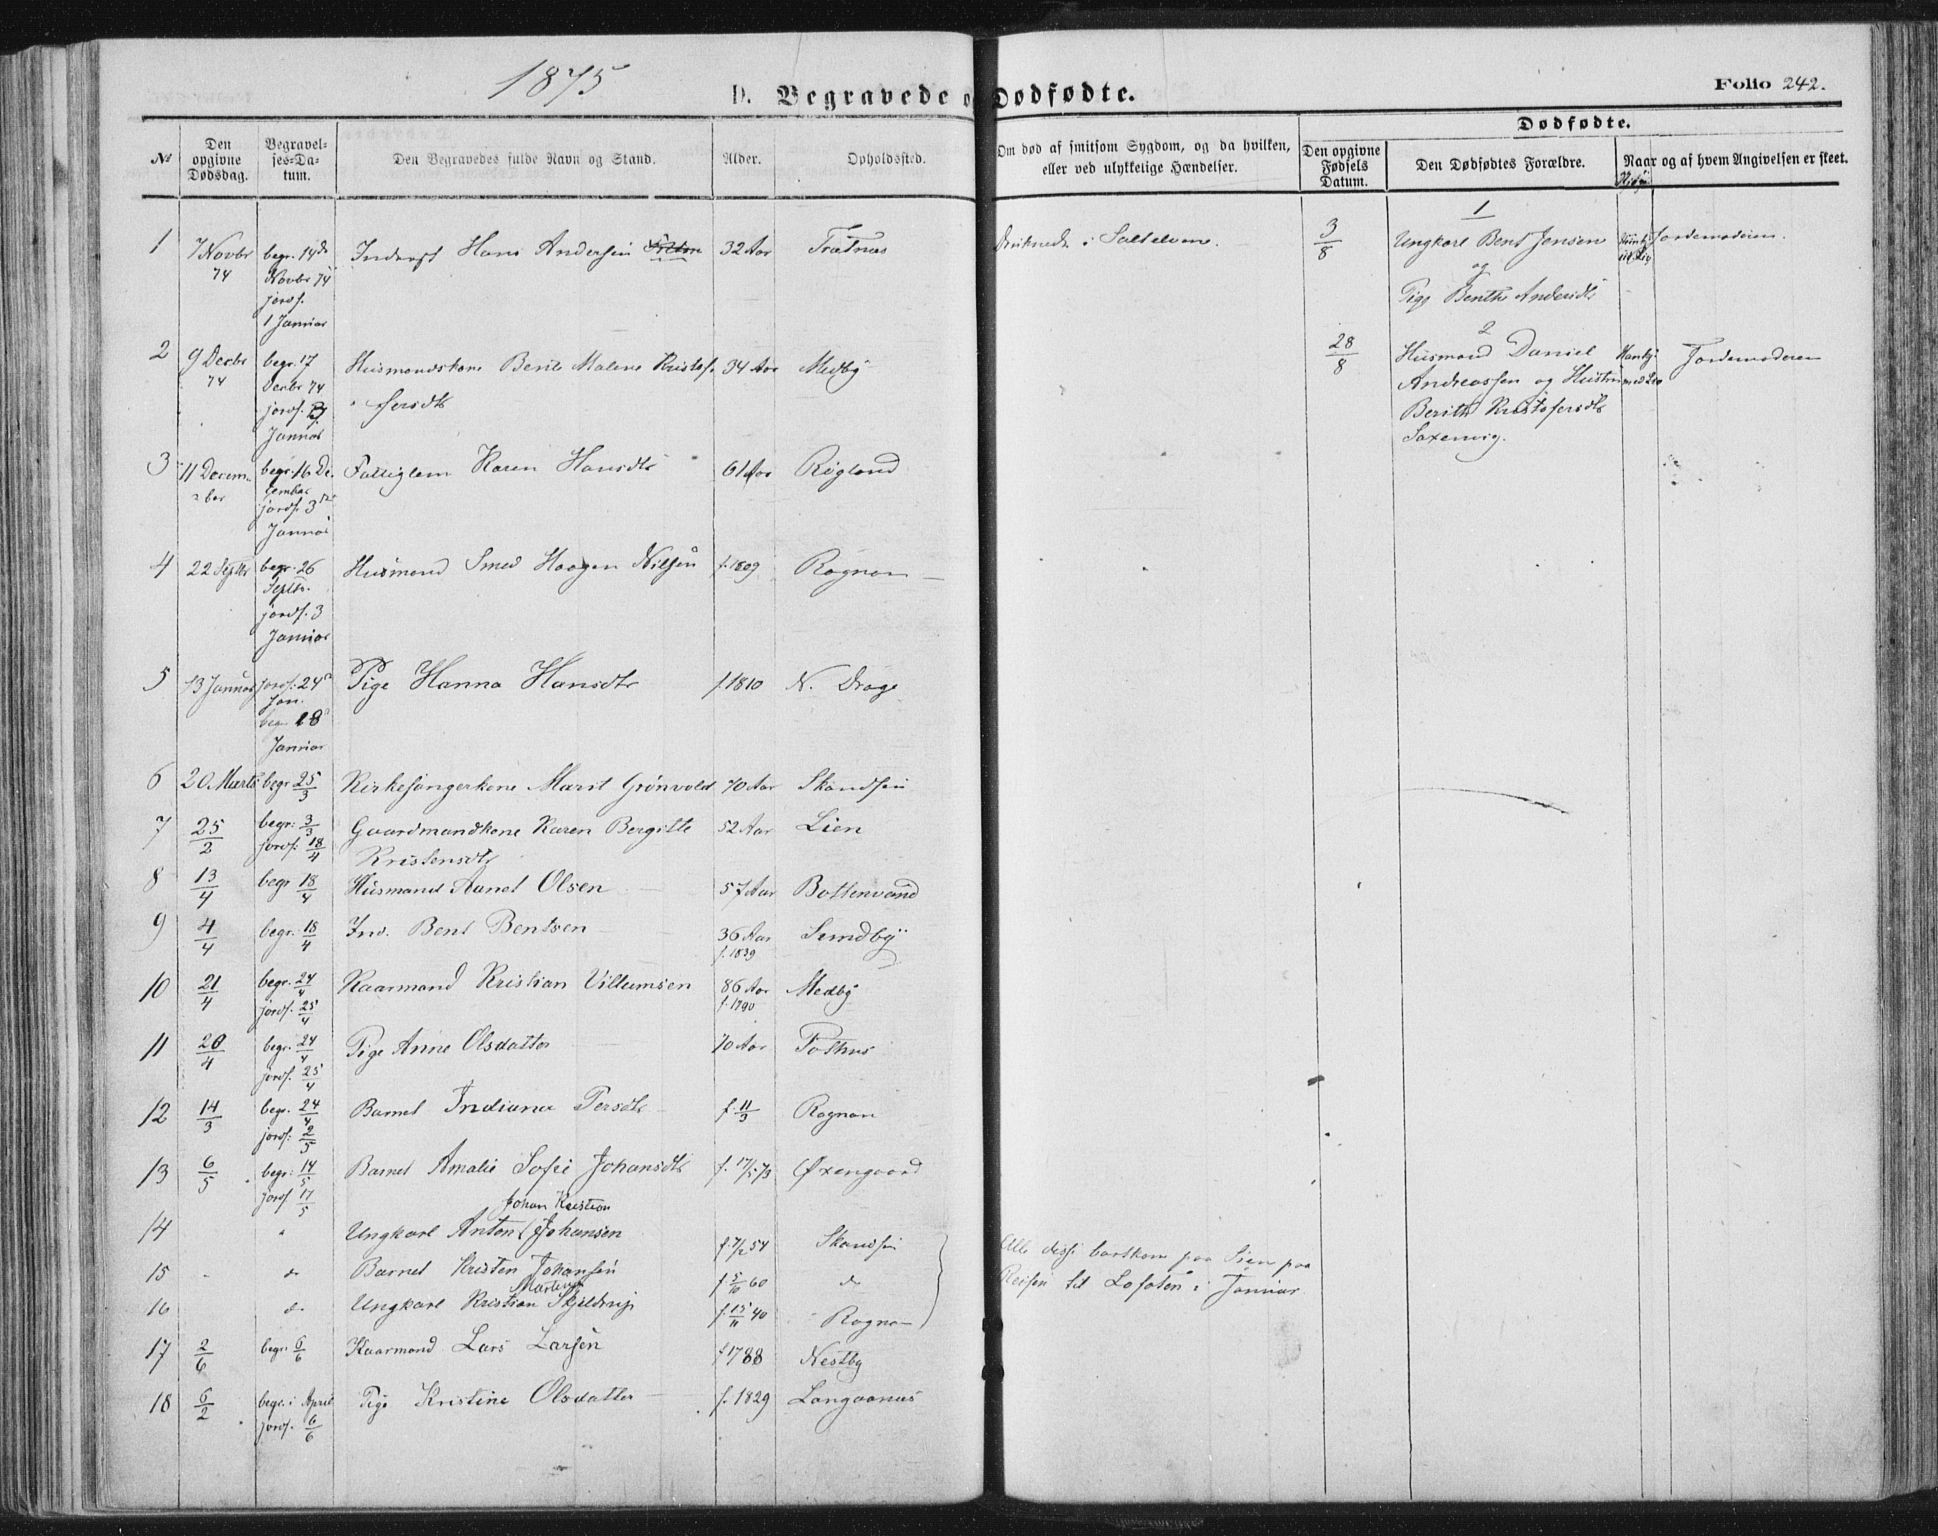 1875
D. Begravede og Dødfødte.
Folio 242.
Dødfødte.
№
Den opgivne Dødsdag.
Begravelses-Datum.
Den Begravedes fulde Navn og Stand.
Alder.
Opholdssted.
Om død af smitsom Sygdom, og da hvilken, eller ved ulykkelige Hændelser.
Den opgivne Fødsels Datum.
Den Dødfødtes Forældre.
Naar og af hvem Angivelsen er skeet.
1 7 Novbr 74 begr. 14de Novbr 74 jordf. 1 Januar Inderst Hans Andersen 32 Aar Trætnæs Druknede i Saltelven.
3/8 1 Ungkarl Bent Jensen og Pige Benthe Andersdtr Jordemoderen
2 9 Decbr 74 begr. 17 Decbr 74 jordf. 3 Januar Husmandskone Berit Malene Kristofersdtr 34 Aar Medby
28/8 2 Husmand Daniel Andreassen og Hustru Berith Kristofersdtr Saxenvig. Jordemoderen
3 11 December begr. 16 December jordf. 3 Januar Fattiglem Karen Hansdtr 61 Aar Røgland
4 22 Septbr begr. 26 Septbr. jordf. 3 Januar Husmand Smed Haagen Nilsen f. 1809 Rognan
5 13 Januar jordf. 24 Jan. begr. 18 Januar Pige Hanna Hansdtr f. 1810 N. Drage
6 20 Marts begr 25/3 Kirkesangerkone Marit Grönvold 70 Aar Skandsen
7 25/2 begr: 3/3 jordf: 18/4 Gaardmandkone Karen Bergitte Kristensdtr 52 Aar Lien
8 13/4 begr 18/4 Husmand Aanet Olsen 57 Aar Bottenvand
9 4/4 begr. 18/4 Ind. Bent Bentsen 36 Aar f. 1839 Sundby
10 21/4 begr. 24/4 jordf. 25/4 Kaarmand Kristian Villumsen 86 Aar f. 1790 Medby
11 20/4 begr. 24/4 jordf. 25/4 Pige Anne Olsdatter 70 Aar Pothus
12 14/3 begr. 24/4 jordf: 2/5 Barnet Indiana Persdtr f. 11/3 Rognan
13 6/5 begr: 14/5 jordf 17/5 Barnet Amalie Sofie Johansdtr f. 17/5 73 Øxengaard
14 " Ungkarl Anton Johan Kristian Johansen f. 7/2 54 Skandsen
15 do Barnet Kristen Johansen f 5/10 60 do
16 do Ungkarl Kristian Martinus Skjeldrup f. 15/11 40 Rognan
Alle disse bortkom paa Søen paa
Reisen til Lofoten i Januar.
17 2/6 begr. 6/6 Kaarmand Lars Larsen f 1788 Nestby
18 6/2 begr. i April jordf. 6/6 Pige Kristine Olsdatter f. 1829 Langaanes